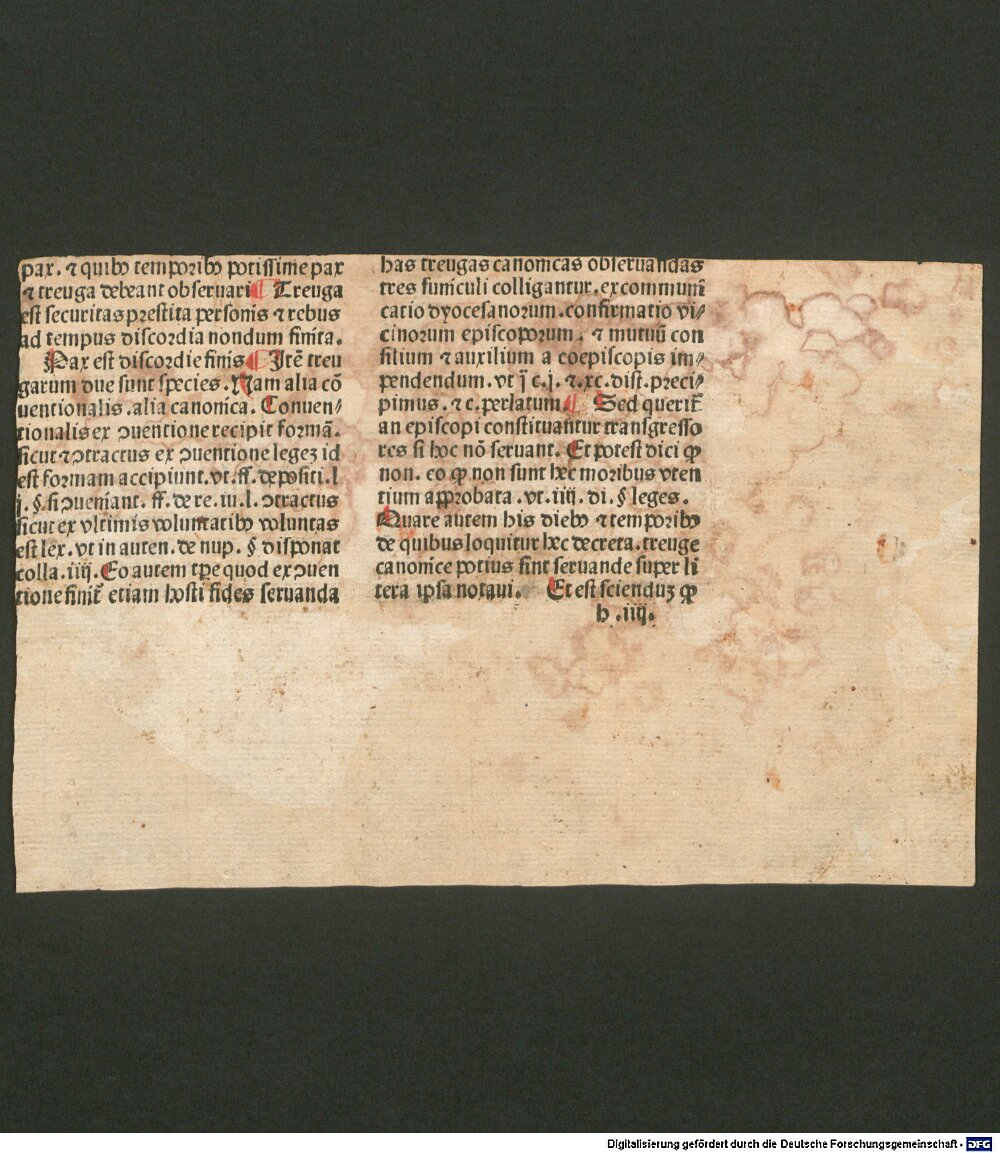 pax. ⁊ quibꝰ temporibꝰ potissime pax
⁊ treuga debeant obseruari ¶ Treuga
est securitas prestita personis ⁊ rebus
ad tempus discordia nondum finita.
Pax est discordie finis ¶ Itē treu
garum due sunt species. Nam alia cō
uentionalis. alia canonica. Conuen⸗
tionalis ex ꝯuentione recipit formā.
sicut ⁊ ꝯtractus ex ꝯuentione legeꝫ id
est formam accipiunt. vt. ff. depositi. l
j. § si ꝯueniant. ff. de re. iu. l. ꝯtractus
sicut ex vltimis voluntatibꝰ voluntas
est lex. vt in auten. de nup. § disponat
colla. iiij. Eo autem tꝑe quod ex ꝯuen
tione finit᷑ etiam hosti fides seruanda
has treugas canonicas obseruandas
tres funiculi colligantur. excommuni
catio dyocesanorum. confirmatio vi⸗
cinorum episcoporum. ⁊ mutuū con
silium ⁊ auxilium a coepiscopis im⸗
pendendum. vt j̄ c. j. ⁊. xc. dist. preci⸗
pimus. ⁊ c. perlatum. ¶ Sed querit᷑
an episcopi constituantur transgresso
res si hoc nō seruant. Et potest dici ꝙ
non. eo ꝙ non sunt hec moribus vten
tium approbata. vt. iiij. di. § leges.
Quare autem his diebꝰ ⁊ temporibꝰ
de quibus loquitur hec decreta. treuge
canonice potius sint seruande super li
tera ipsa notaui. Et est scienduꝫ ꝙ
h .iiij.
Digitalisierung gefördert durch die Deutsche Forschungsgemeinschaft - DFG